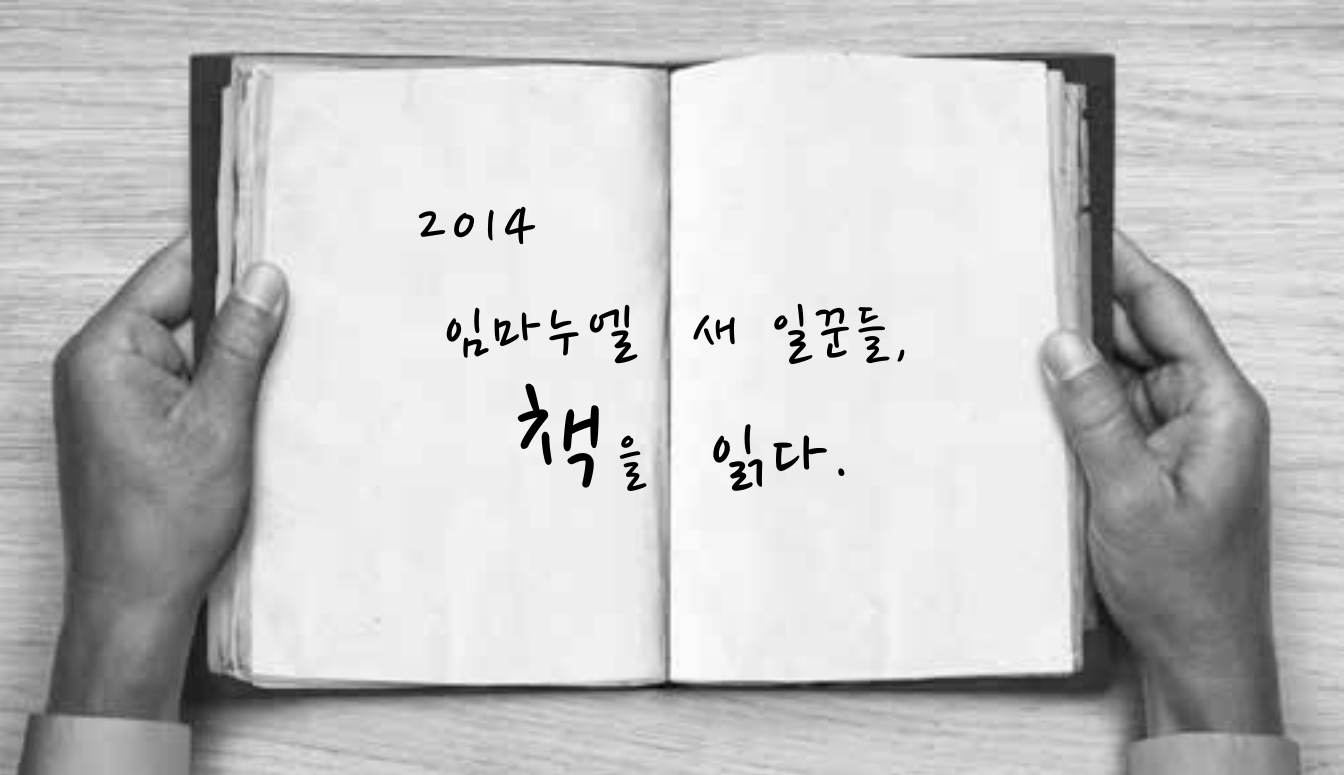 2014
임마누엘 새 일꾼들,
책을 읽다.